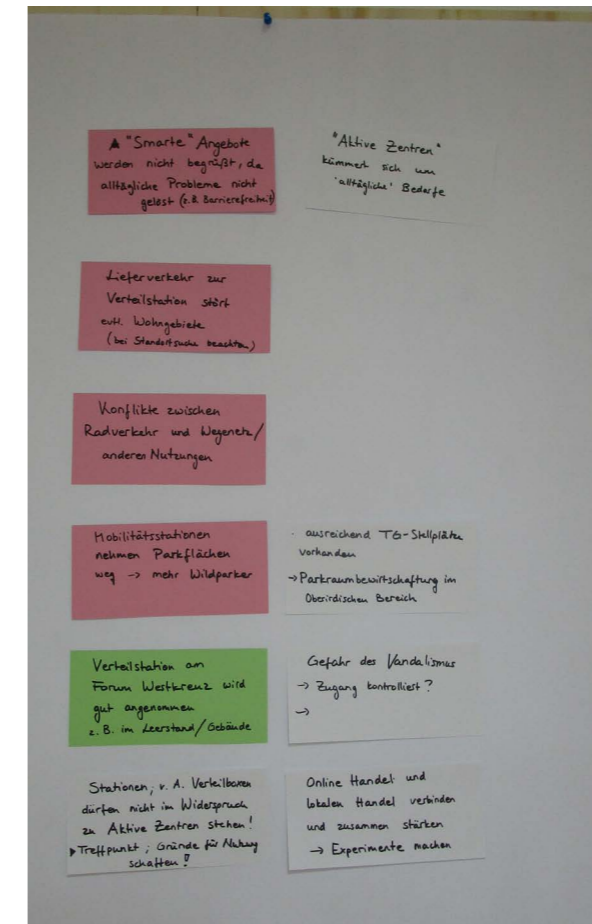 ▲ "Smarte" Angebote
werden nicht begrüßt, da
alltägliche Probleme nicht
gelöst (z.B. Barrierefreiheit)
"Aktive Zentren"
kümmert sich um
'alltägliche' Bedarfe
Lieferverkehr zur
Verteilstation stört
evtl. Wohngebiete
(bei Standortsuche beachten)
Konflikte zwischen
Radverkehr und Wegenetz/
anderen Nutzungen
Mobilitätsstationen
nehmen Parkflächen
weg -> mehr Wildparker
· ausreichend TG-Stellplätze
vorhanden
-> Parkraumbewirtschaftung im
Oberirdischen Bereich
Verteilstation am
Forum Westkreuz wird
gut angenommen
z.B. im Leerstand/Gebäude
Gefahr des Vandalismus
-> Zugang kontrolliert?
->
Stationen, v. A. Verteilboxen
dürfen nicht im Widerspruch
zu Aktive Zentren stehen!
▶ Treffpunkt; Gründe für Nutzung
schaffen!
Online Handel und
lokalen Handel verbinden
und zusammen stärken
-> Experimente machen